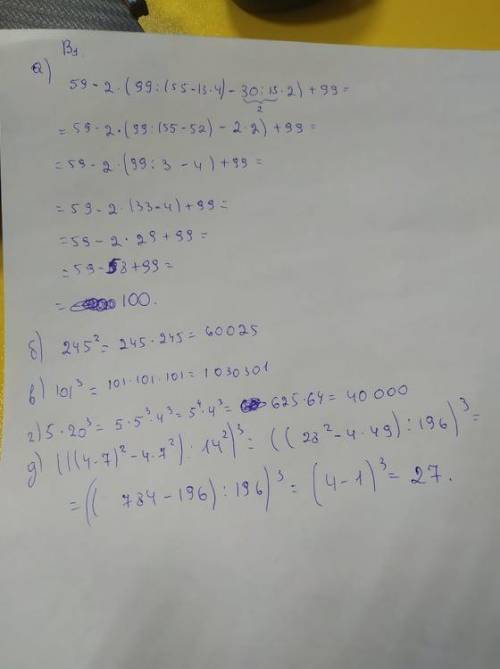 В₁
а) 59 - 2 · (99 : (55 - 13·4) - 30 : 15 · 2) + 99 =
2
= 59 - 2 · (99 : (55 - 52) - 2·2) + 99 =
= 59 - 2 · (99 : 3 - 4) + 99 =
= 59 - 2 · (33 - 4) + 99 =
= 59 - 2 · 29 + 99 =
= 59 - 58 + 99 =
= 100.
б) 245² = 245 · 245 = 60025
в) 101³ = 101 · 101 · 101 = 1030301
г) 5 · 20³ = 5 · 5³ · 4³ = 5⁴ · 4³ = 625 · 64 = 40 000
д) (((4·7)² - 4·7²) : 14²)³ = ((28² - 4·49) : 196)³ =
= ((784 - 196) : 196)³ = (4 - 1)³ = 27.